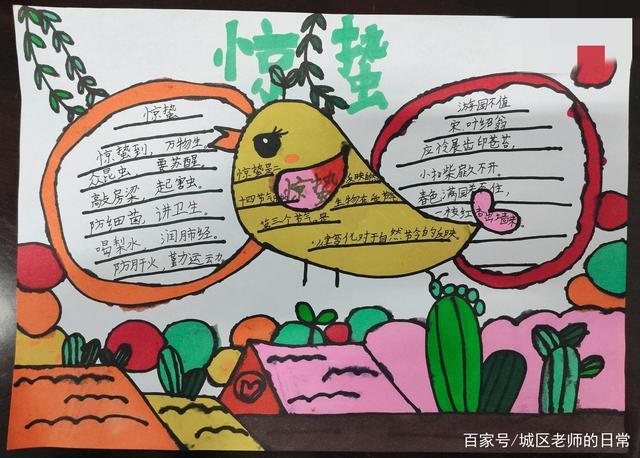 惊蛰
惊蛰
惊蛰到，万物生。
众昆虫 要苏醒
敲房梁，起害虫
防细菌，讲卫生。
喝梨水，润肺经。
防肝火，勤运动
惊蛰是二
十四节气
第三个节气，是
生物
变化对于自然节令的反映
惊蛰
游园不值
宋·叶绍翁
应怜屐齿印苍苔，
小扣柴扉久不开。
春色满园关不住，
一枝红
出墙来
百家号/城区老师的日常